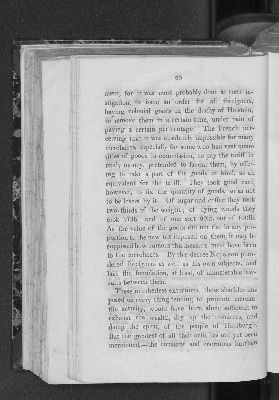 60
ment, for it was most probably done at their in-
stigation, to issue an order for all foreigners,
having colonial goods in the duchy of Holstein,
to remove them in a certain time, under pain of
paying a certain per centage. The French per-
ceiving that it was absolutely impossible for many
merchants, especially for some who had vast quan-
tities of goods in commission, to pay the tariff in
ready money, pretended to favour them, by offer-
ing to take a part of the goods in kind, as an
equivalent for the tariff. They took good care,
however, to fix the quantity of goods, so as not
to be losers by it. Of sugar and coffee they took
two-thirds of the weight; of dying woods they
took and of one sort 90lb. out of 100lb.
As the value of the goods did not rise in any pro-
portion to the new tax imposed on them, it may be
supposed how ruinous this measure must have been
to the merchants. By this decree Napoleon plun-
dered foreigners as well as his own subjects, and
laid the foundation, at least, of innumerable law-
suits between them.
These numberless extortions, these shackles im-
posed on every thing tending to promote mercan-
tile activity, would have been alone sufficient to
exhaust the wealth, dry up the resources, and
damp the spirit, of the people of Hamburgh.
But the greatest of all their evils has not yet been
mentioned,—the constant and enormous burthen